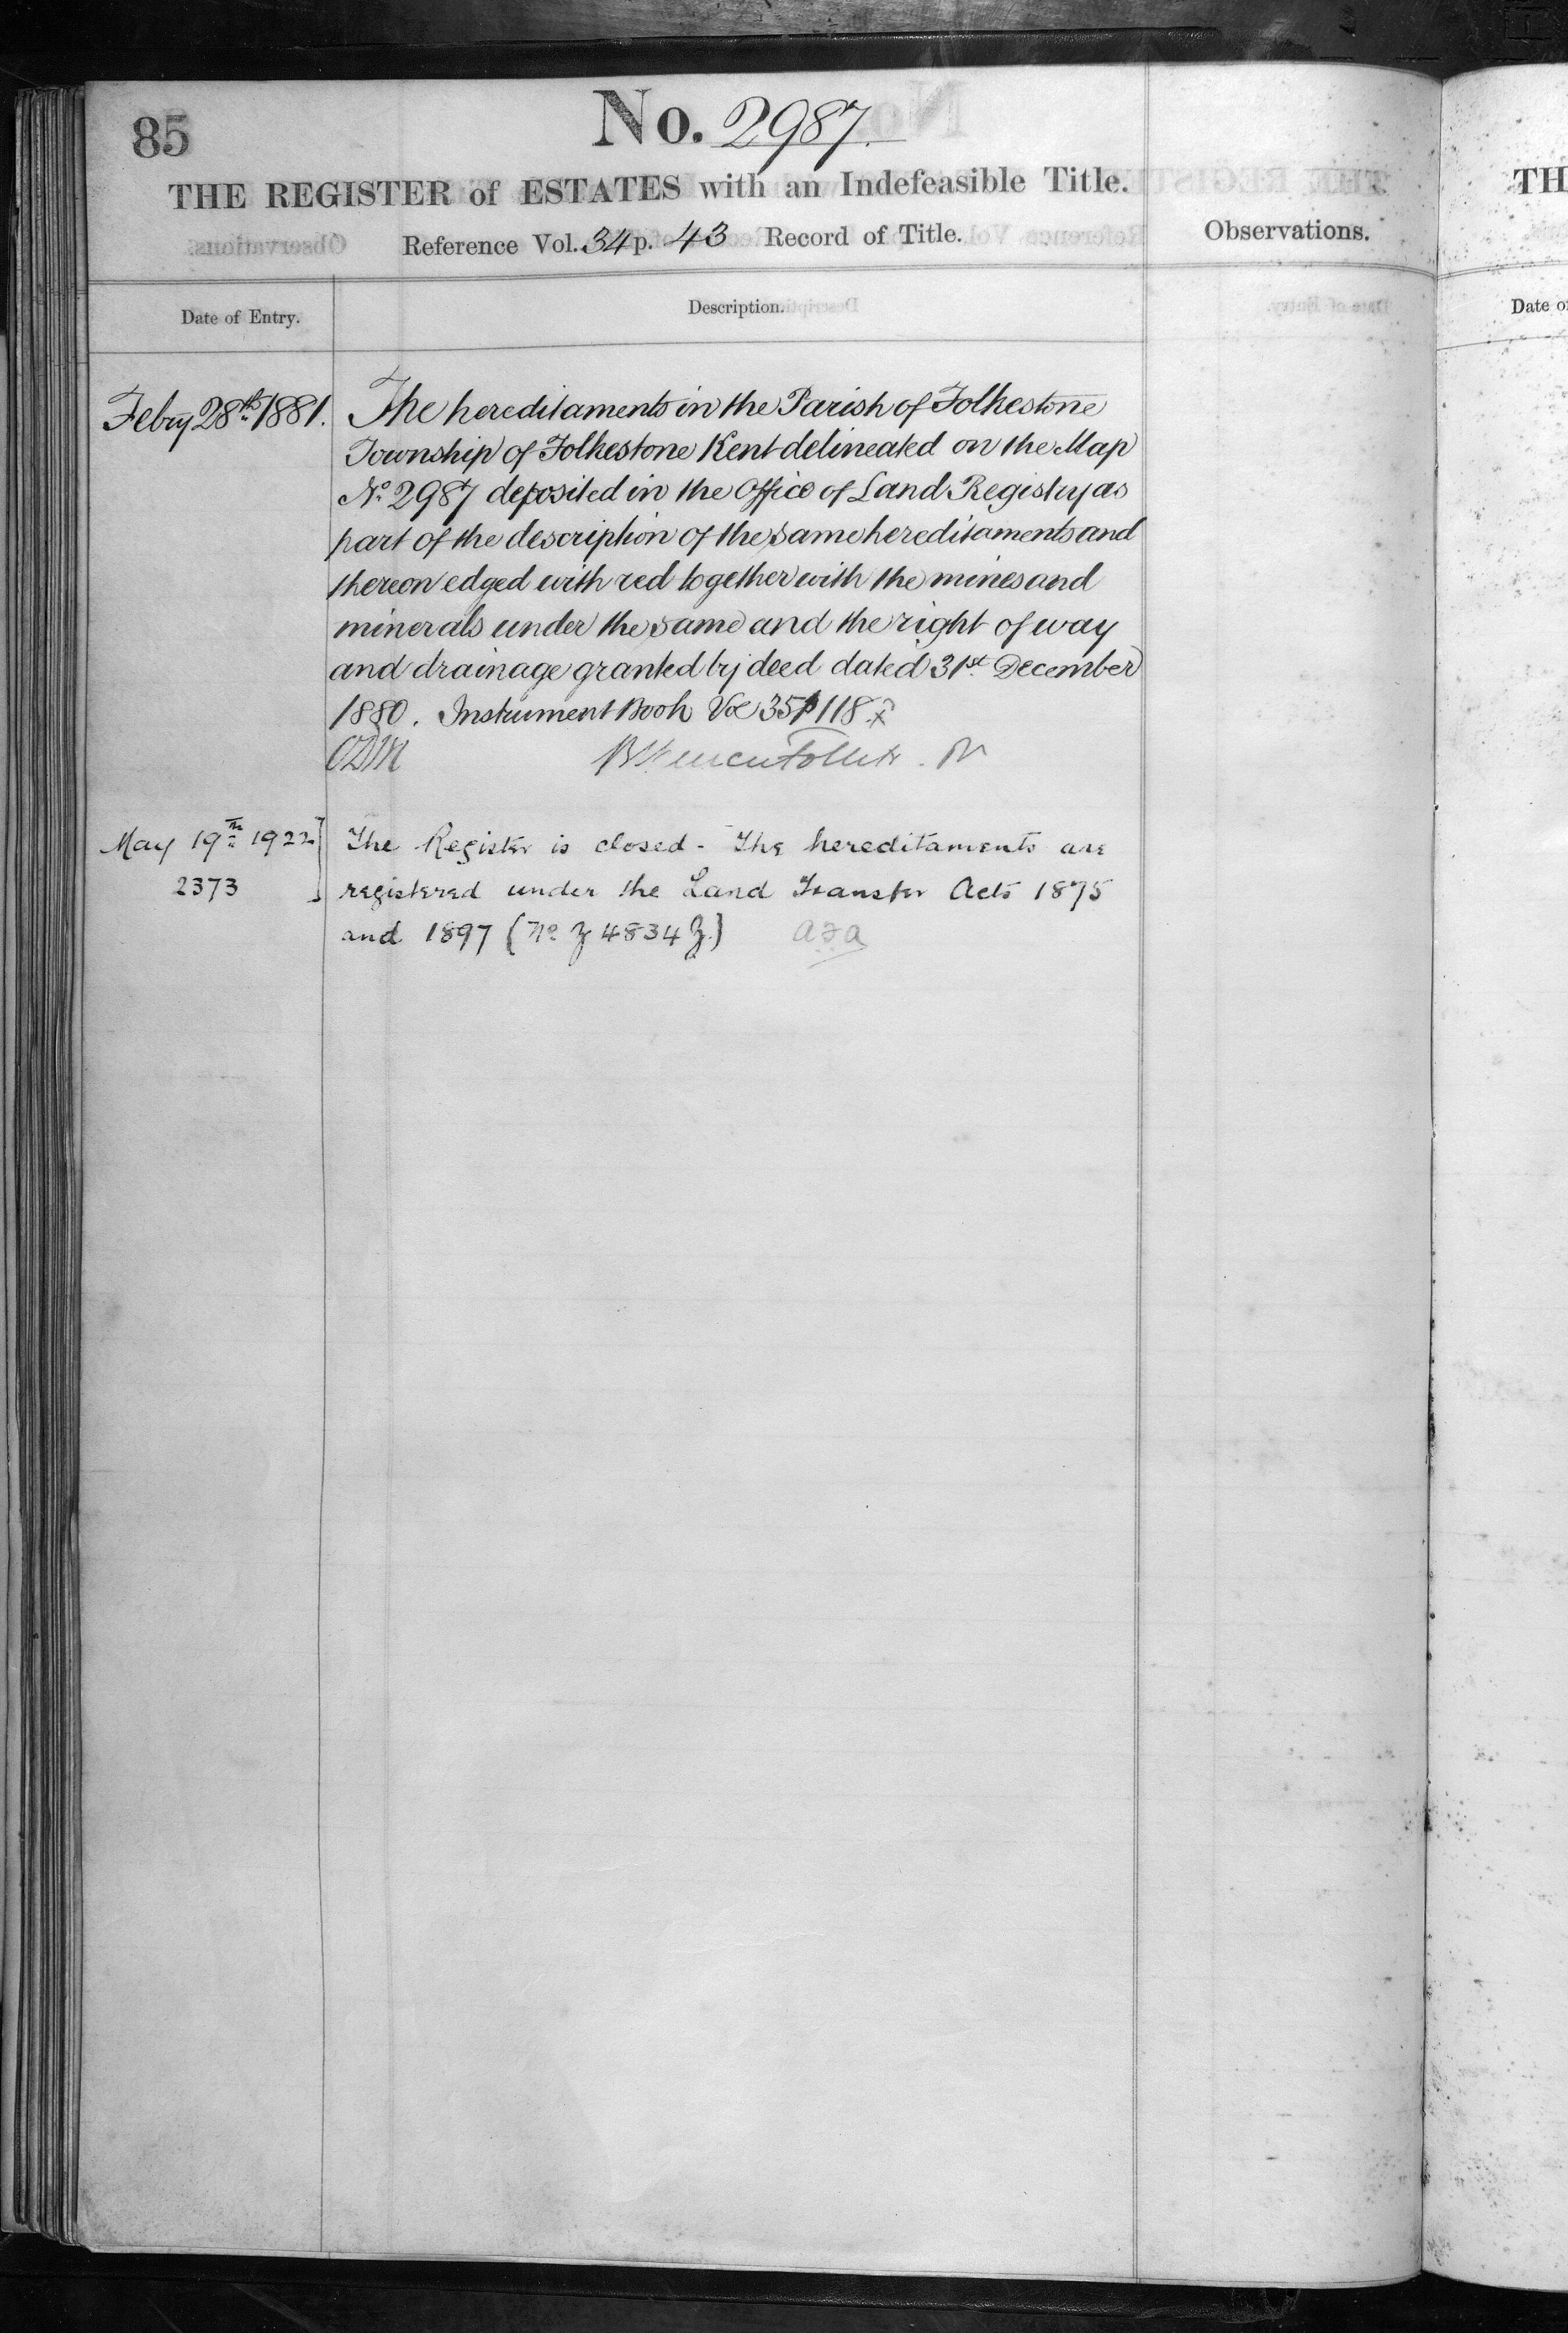 85
No. 2987.
THE REGISTER of ESTATES with an Indefeasible Title.
Reference Vol. 34 p. 43 Record of Title.
Observations.
Date of Entry.
Description.
Febry 28th 1881.
The hereditaments in the Parish of Folkestone
Township of Folkestone Kent delineated on the Map
No 2987 deposited in the Office of Land Registry as
part of the description of the same hereditaments and
thereon edged with red together with the mines and
minerals under the same and the right of way
and drainage granted by deed dated 31st December
1880. Instrument Book Vol 35 p 118
May 19th 1922
2373
The Register is closed - The hereditaments are
registered under the Land Transfer Acts 1875
and 1897 (No Z 4834 Z.)
TH
Date o